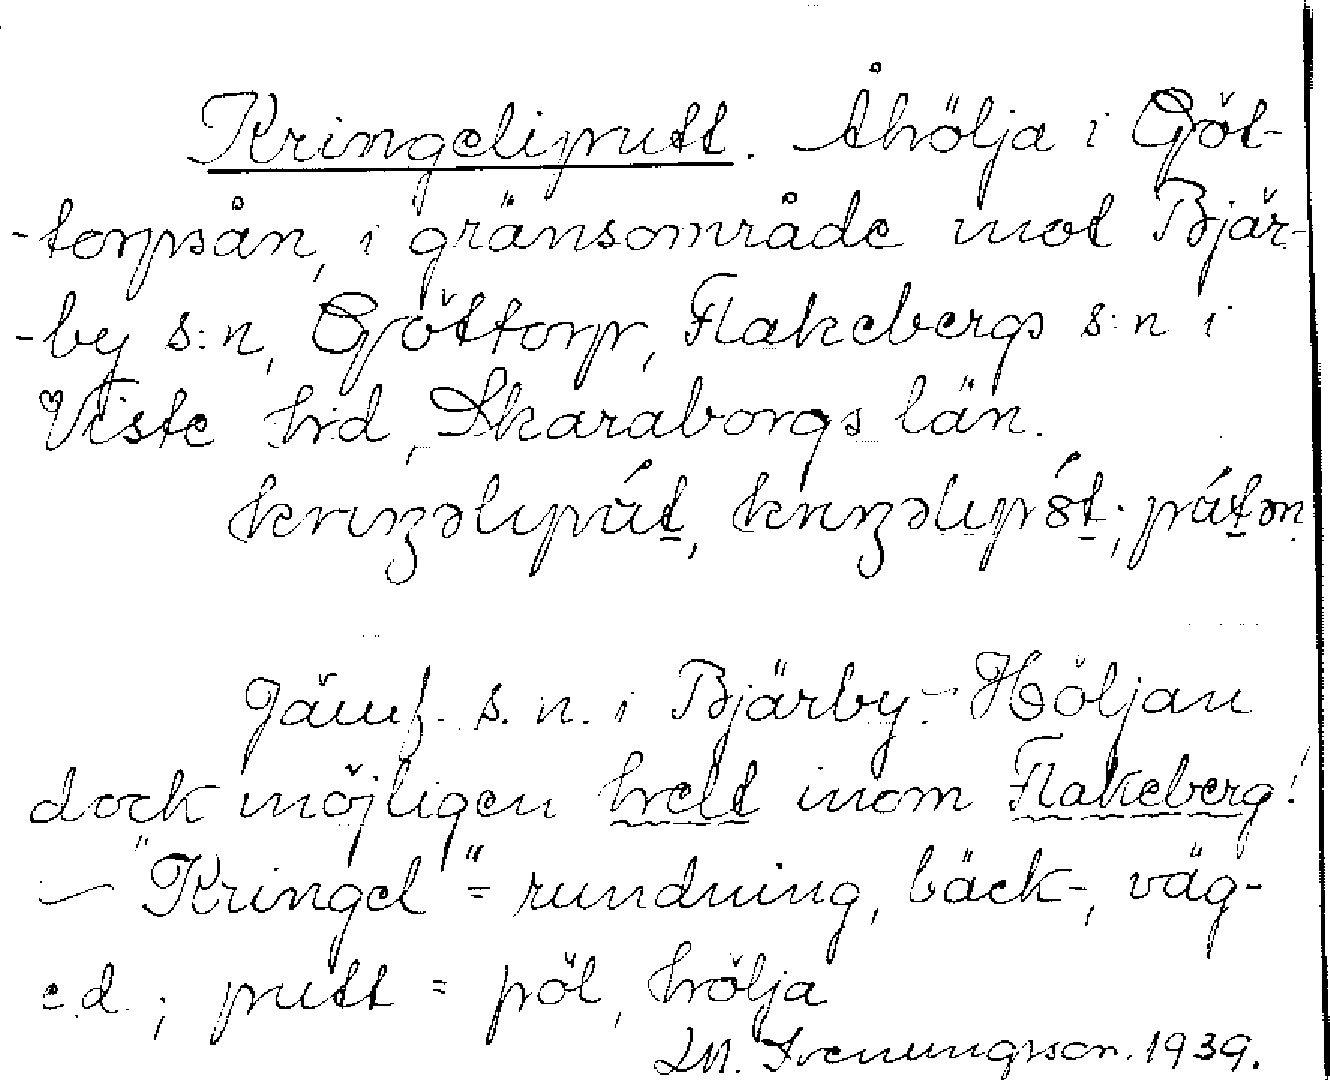 Kringeliputt. Åhölja i Göt-
-torpsån, i gränsområde mot Bjär-
-by s:n, Göttorp, Flakebergs s:n i
Viste hd, Skaraborgs län.
Jämf. s. n. i Bjärby. - Höljan
dock möjligen helt inom Flakeberg!
— "Kringel" = rundning, bäck-, väg-
e.d.; putt = pöl, hölja
1939.